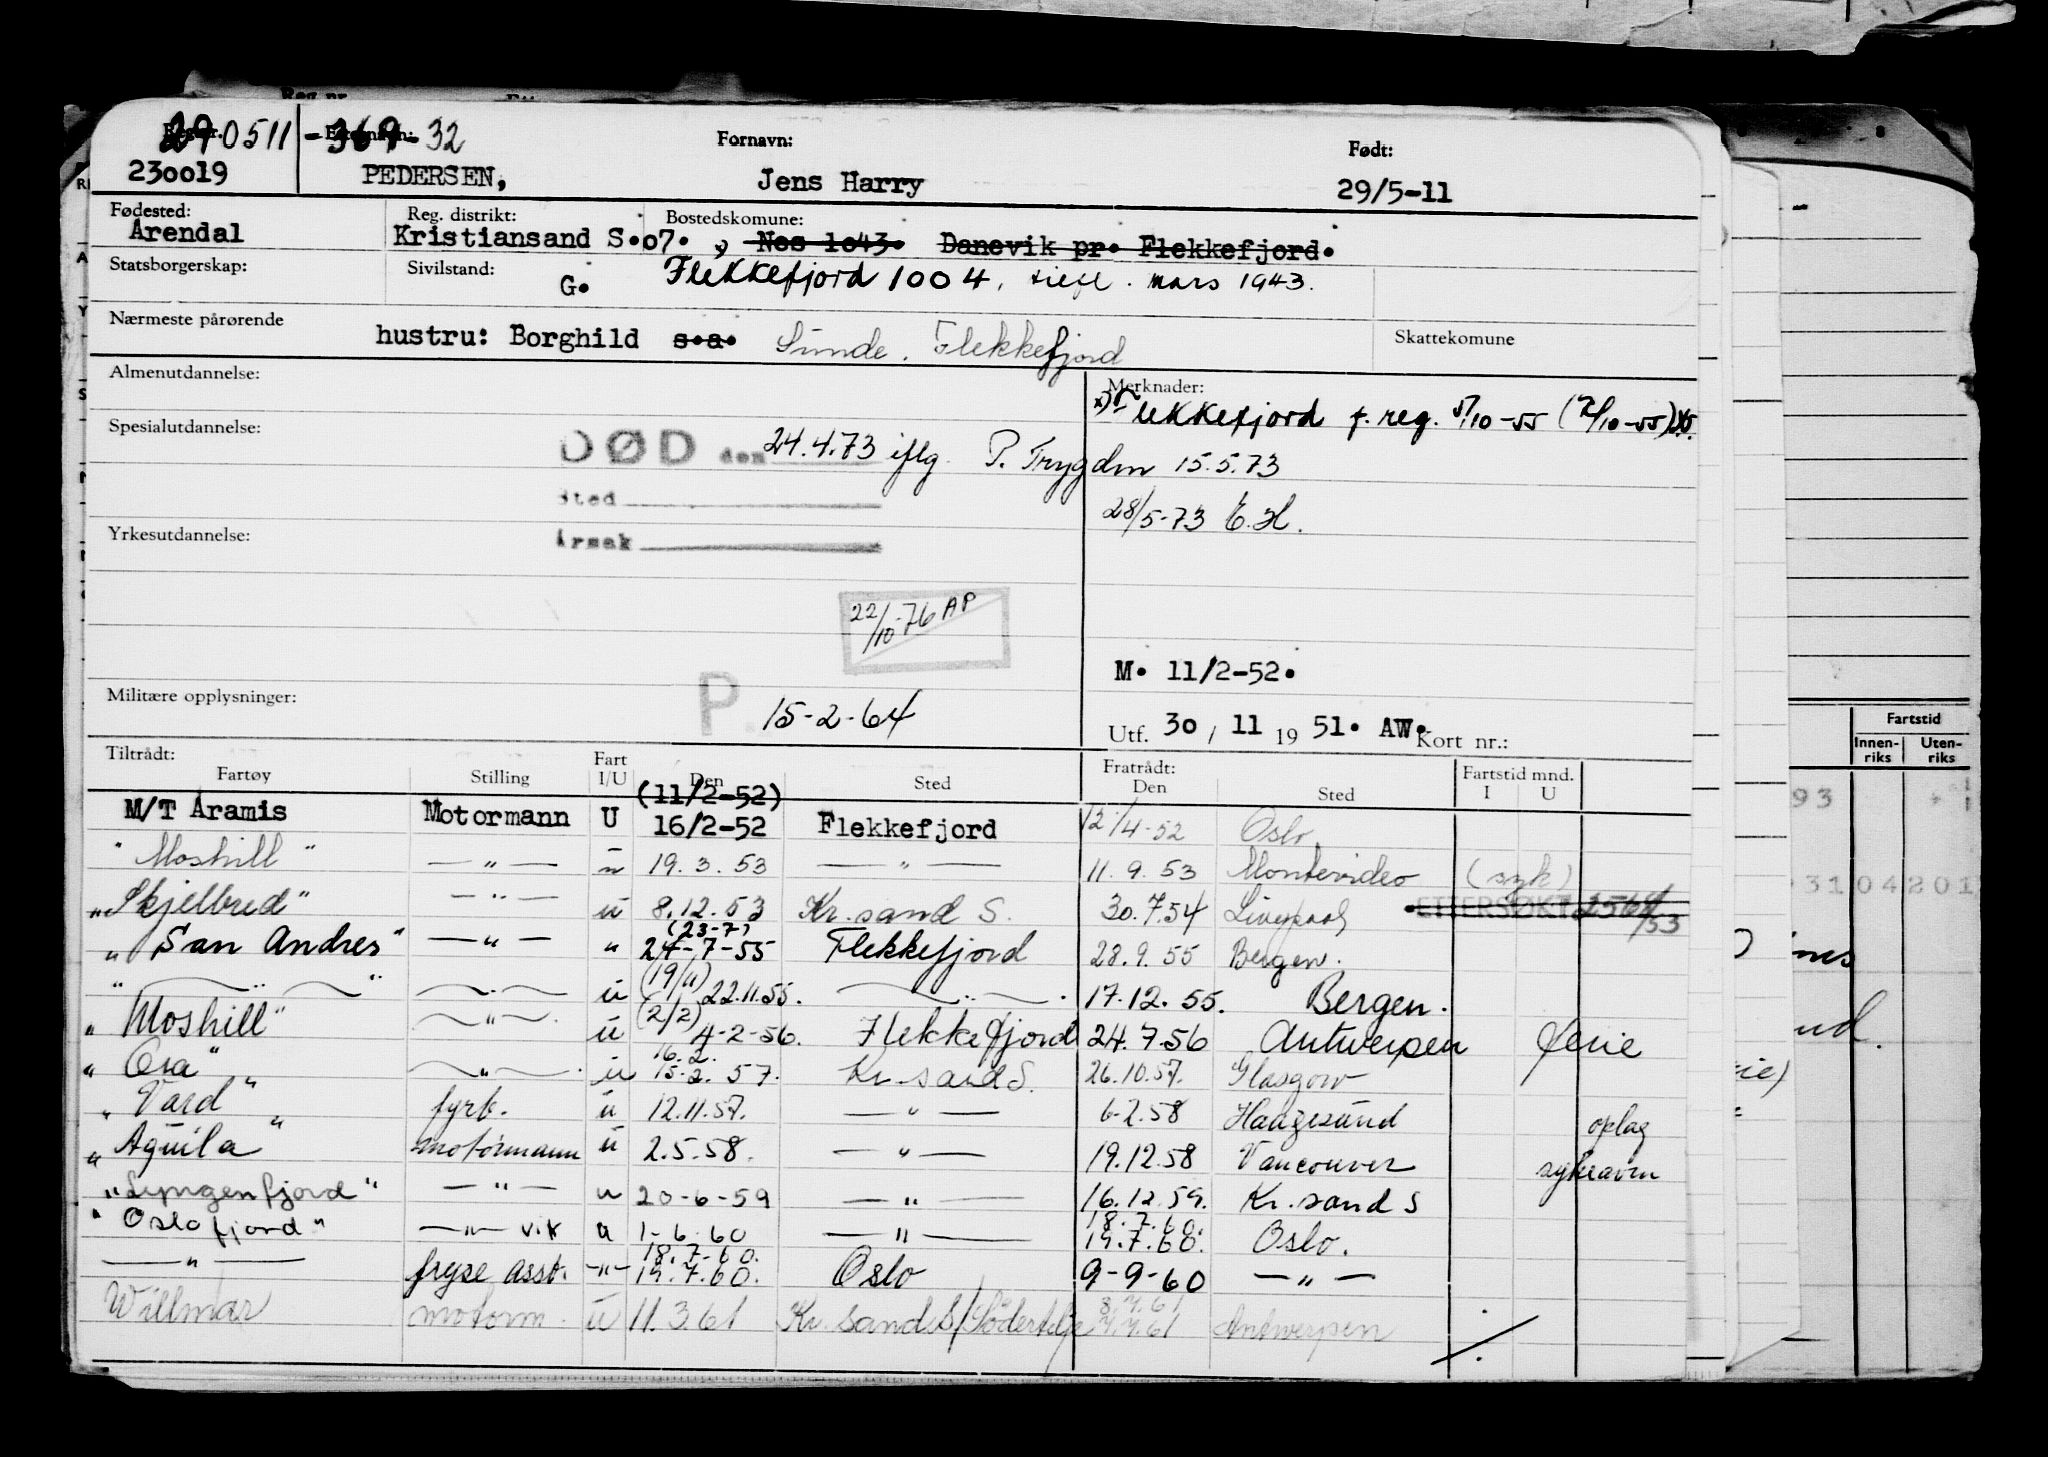 290511-369-32
Reg.nr. Etternavn: Fornavn: Født:
230019 PEDERSEN, Jens Harry 29/5-11
Fødested: Reg. distrikt: Bostedskomune:
Arendal Kristiansand S.07. x) Nes 1043. Danevik pr. Flekkefjord.
Statsborgerskap: Sivilstand: G. Flekkefjord 1004, mars 1943.
Nærmeste pårørende hustru: Borghild s.a. Sunde. Flekkefjord Skattekomune
Almenutdannelse: Merknader:
x) Flekkefjord f. reg. 5/10-55 (7/10-55)
Spesialutdannelse: DØD den 24.4.73 iflg. P. Trygdm 15.5.73
Sted 28/5-73 E.H.
Yrkesutdannelse: Årsak
22/10-76 AP
M. 11/2-52.
Militære opplysninger: P. 15-2-64
Utf. 30 / 11 19 51. AW. Kort nr.:
Tiltrådt: Fart Fratrådt: Fartstid mnd.
Fartøy Stilling I/U Den Sted Den Sted I U
(11/2-52)
M/T Aramis Motormann U 16/2-52 Flekkefjord 12/4-52 Oslo
" Moshill " — " — u 19.3.53 — " — 11.9.53 Montevideo (syk)
"Skjelbred" — " — u 8.12.53 Kr.sand S. 30.7.54 Liverpool ETTERSØKT 2564/53
(23-7)
" San Andres" — " — " 24-7-55 Flekkefjord 28.9.55 Bergen.
" — " — " — " — u (19/11) 22.11.55. — " — . 17.12.55. Bergen.
" Moshill" — " — u (2/2) 4-2-56. Flekkefjord 24.7.56 Antwerpen ferie
16.2.
" Ora" — " — u 15.2.57. Kr.sand S. 26.10.57. Glasgow
" Vard " fyrb. u 12.11.57. — " — 6-2.58 Haugesund oplag
" Aquila " motormann u 2.5.58. — " — 19.12.58 Vancouver
"Lyngenfjord" — " — u 20-6-59 — " — 16.12.59. Kr.sand S
18.7.60.
" Oslofjord" — " — vik u 1-6-60 — " — 19.7.60. Oslo.
18.7-60.
— " — fryse asst. — " — 19.7.60. Oslo 9-9-60 — " —
8.4.61
Willmar motorm. u 11.3.61 Kr.sand S/Södertelje 7.4.61 Antwerpen
Fartstid
Innen-riks Uten-riks